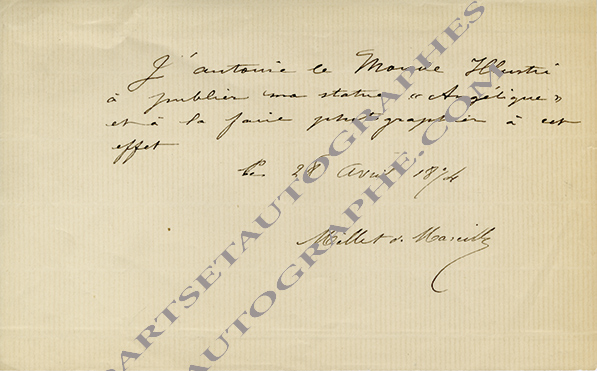 J'autorise le Monde Illustré
à publier ma statue « Angélique »
et à la faire photographier à cet
effet
Le 28 Avril 1874
Millet de Marcilly
PARTSETAUTOGRAPHES
AUTOGRAPHE.COM